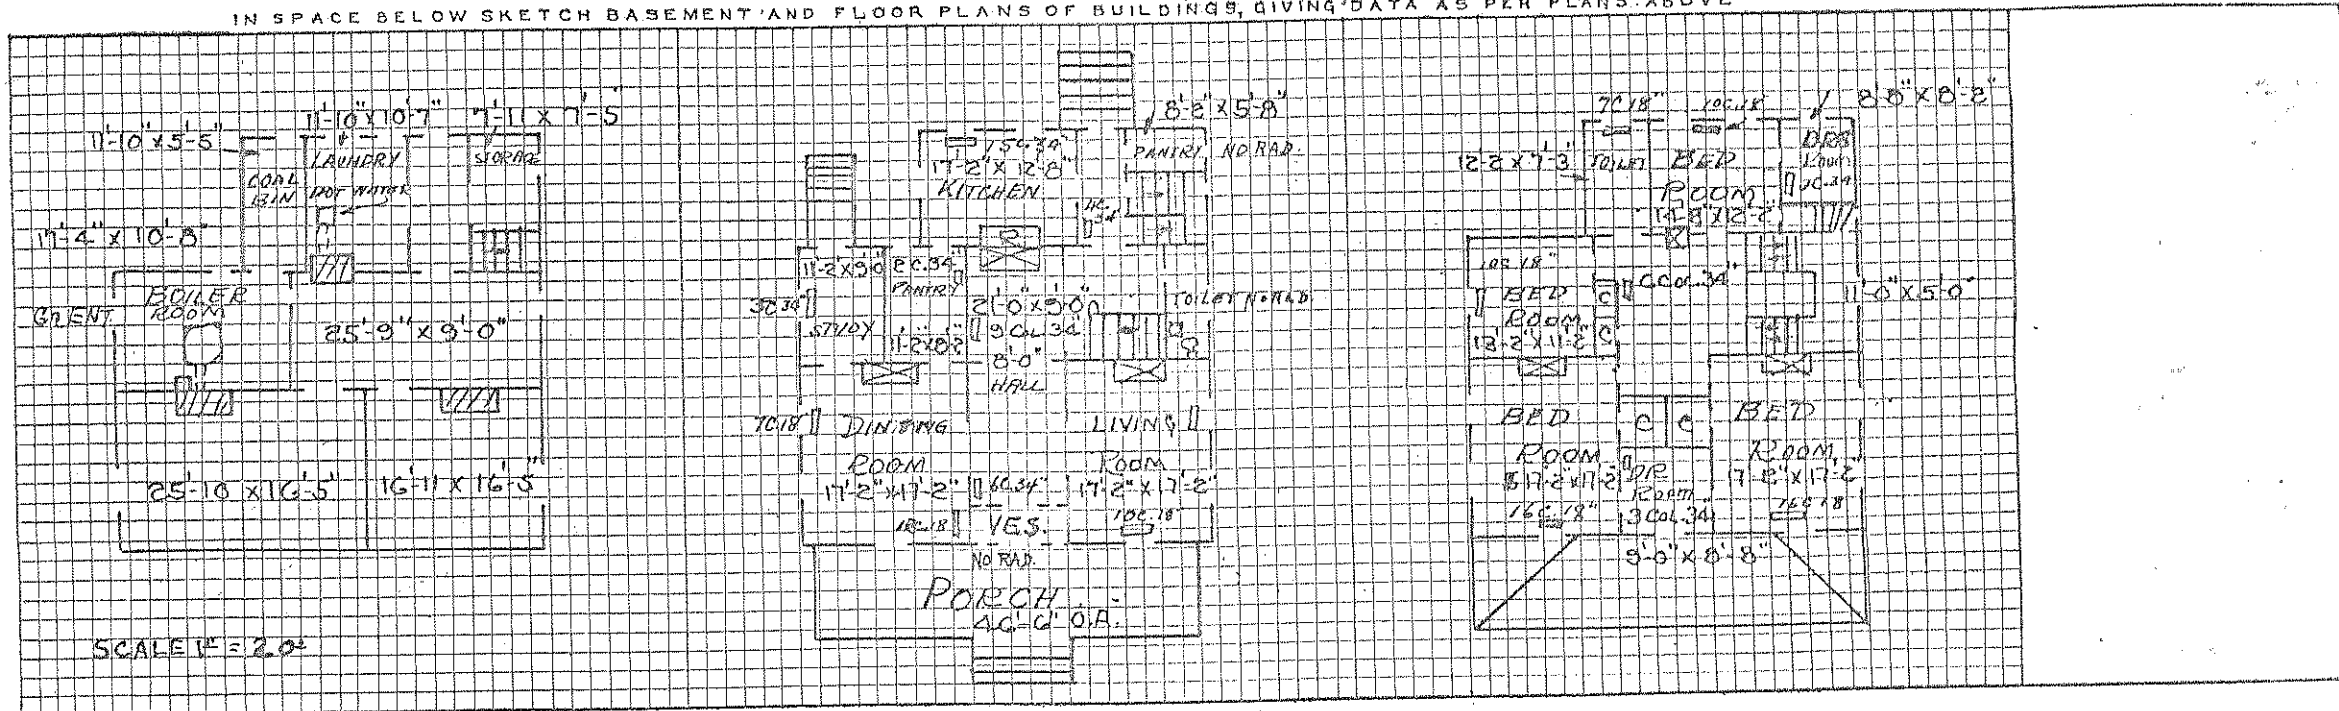 IN SPACE BELOW SKETCH BASEMENT AND FLOOR PLANS OF BUILDINGS, GIVING DATA AS PER PLANS ABOVE
11'-10" x 5'-5"
11'-10" x 10'-7"
7'-11 x 7'-5"
COAL
BIN
LAUNDRY
HOT WATER
STORAGE
17'-4" x 10'-8"
BOILER
ROOM
25'-9" x 9'-0"
25'-10 x 16'-5"
16'-11 x 16'-5"
SCALE 1" = 20'
8'-2" x 5'-8"
15C.34"
17'-2" x 12'-8"
KITCHEN
PANTRY NO RAD.
4C.
34"
11'-2 x 9'0
2C.34"
PANTRY
3C 34"
STUDY
11'-2 x 8'-2"
21'-0" x 9'-0"
9 COL 34"
8'-0"
HALL
TOILET NO RAD.
7C18"
DINING
ROOM
17'-2" x 17'-2"
LIVING
ROOM
17'-2" x 17'-2"
6C.34"
VES.
10C.18"
NO RAD.
PORCH
46'-6" O.A.
7C18"
10C.18"
8'8" x 8'-2"
12'-2 x 7'-3"
TOILET
BED
ROOM
14'-8" x 12'-2"
DRS
ROOM
10C 18"
BED
ROOM
13'-2" x 11'-2"
C
C
6 COL.34"
11'-0" x 5'-0"
BED
ROOM
17'-2 x 17-2
16C.18"
C
C
DR
ROOM
3 COL.34"
BED
ROOM
17'-2" x 17'-2
16C 18
9'-0" x 8'-8"